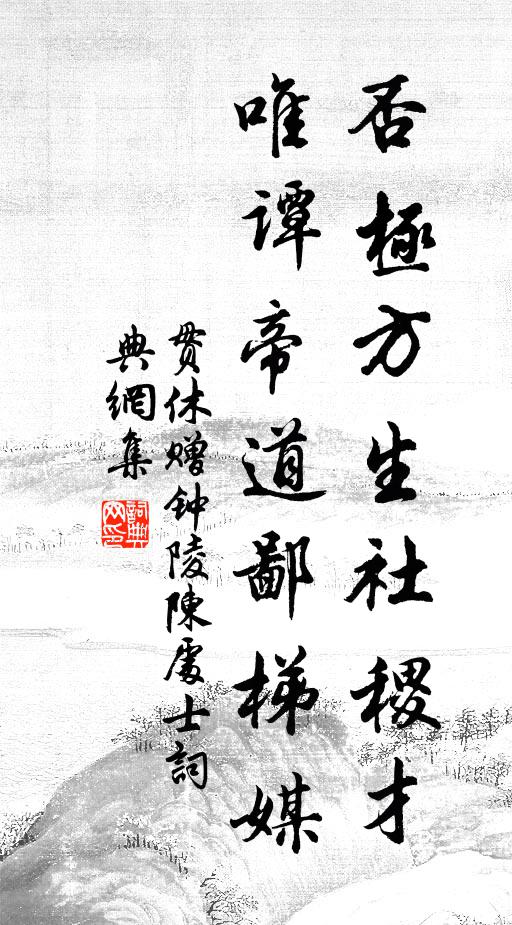 否極方生社稷才
唯譚帝道鄙梯媒
贯休赠钟陵陳處士詞
典網集
詞典网印